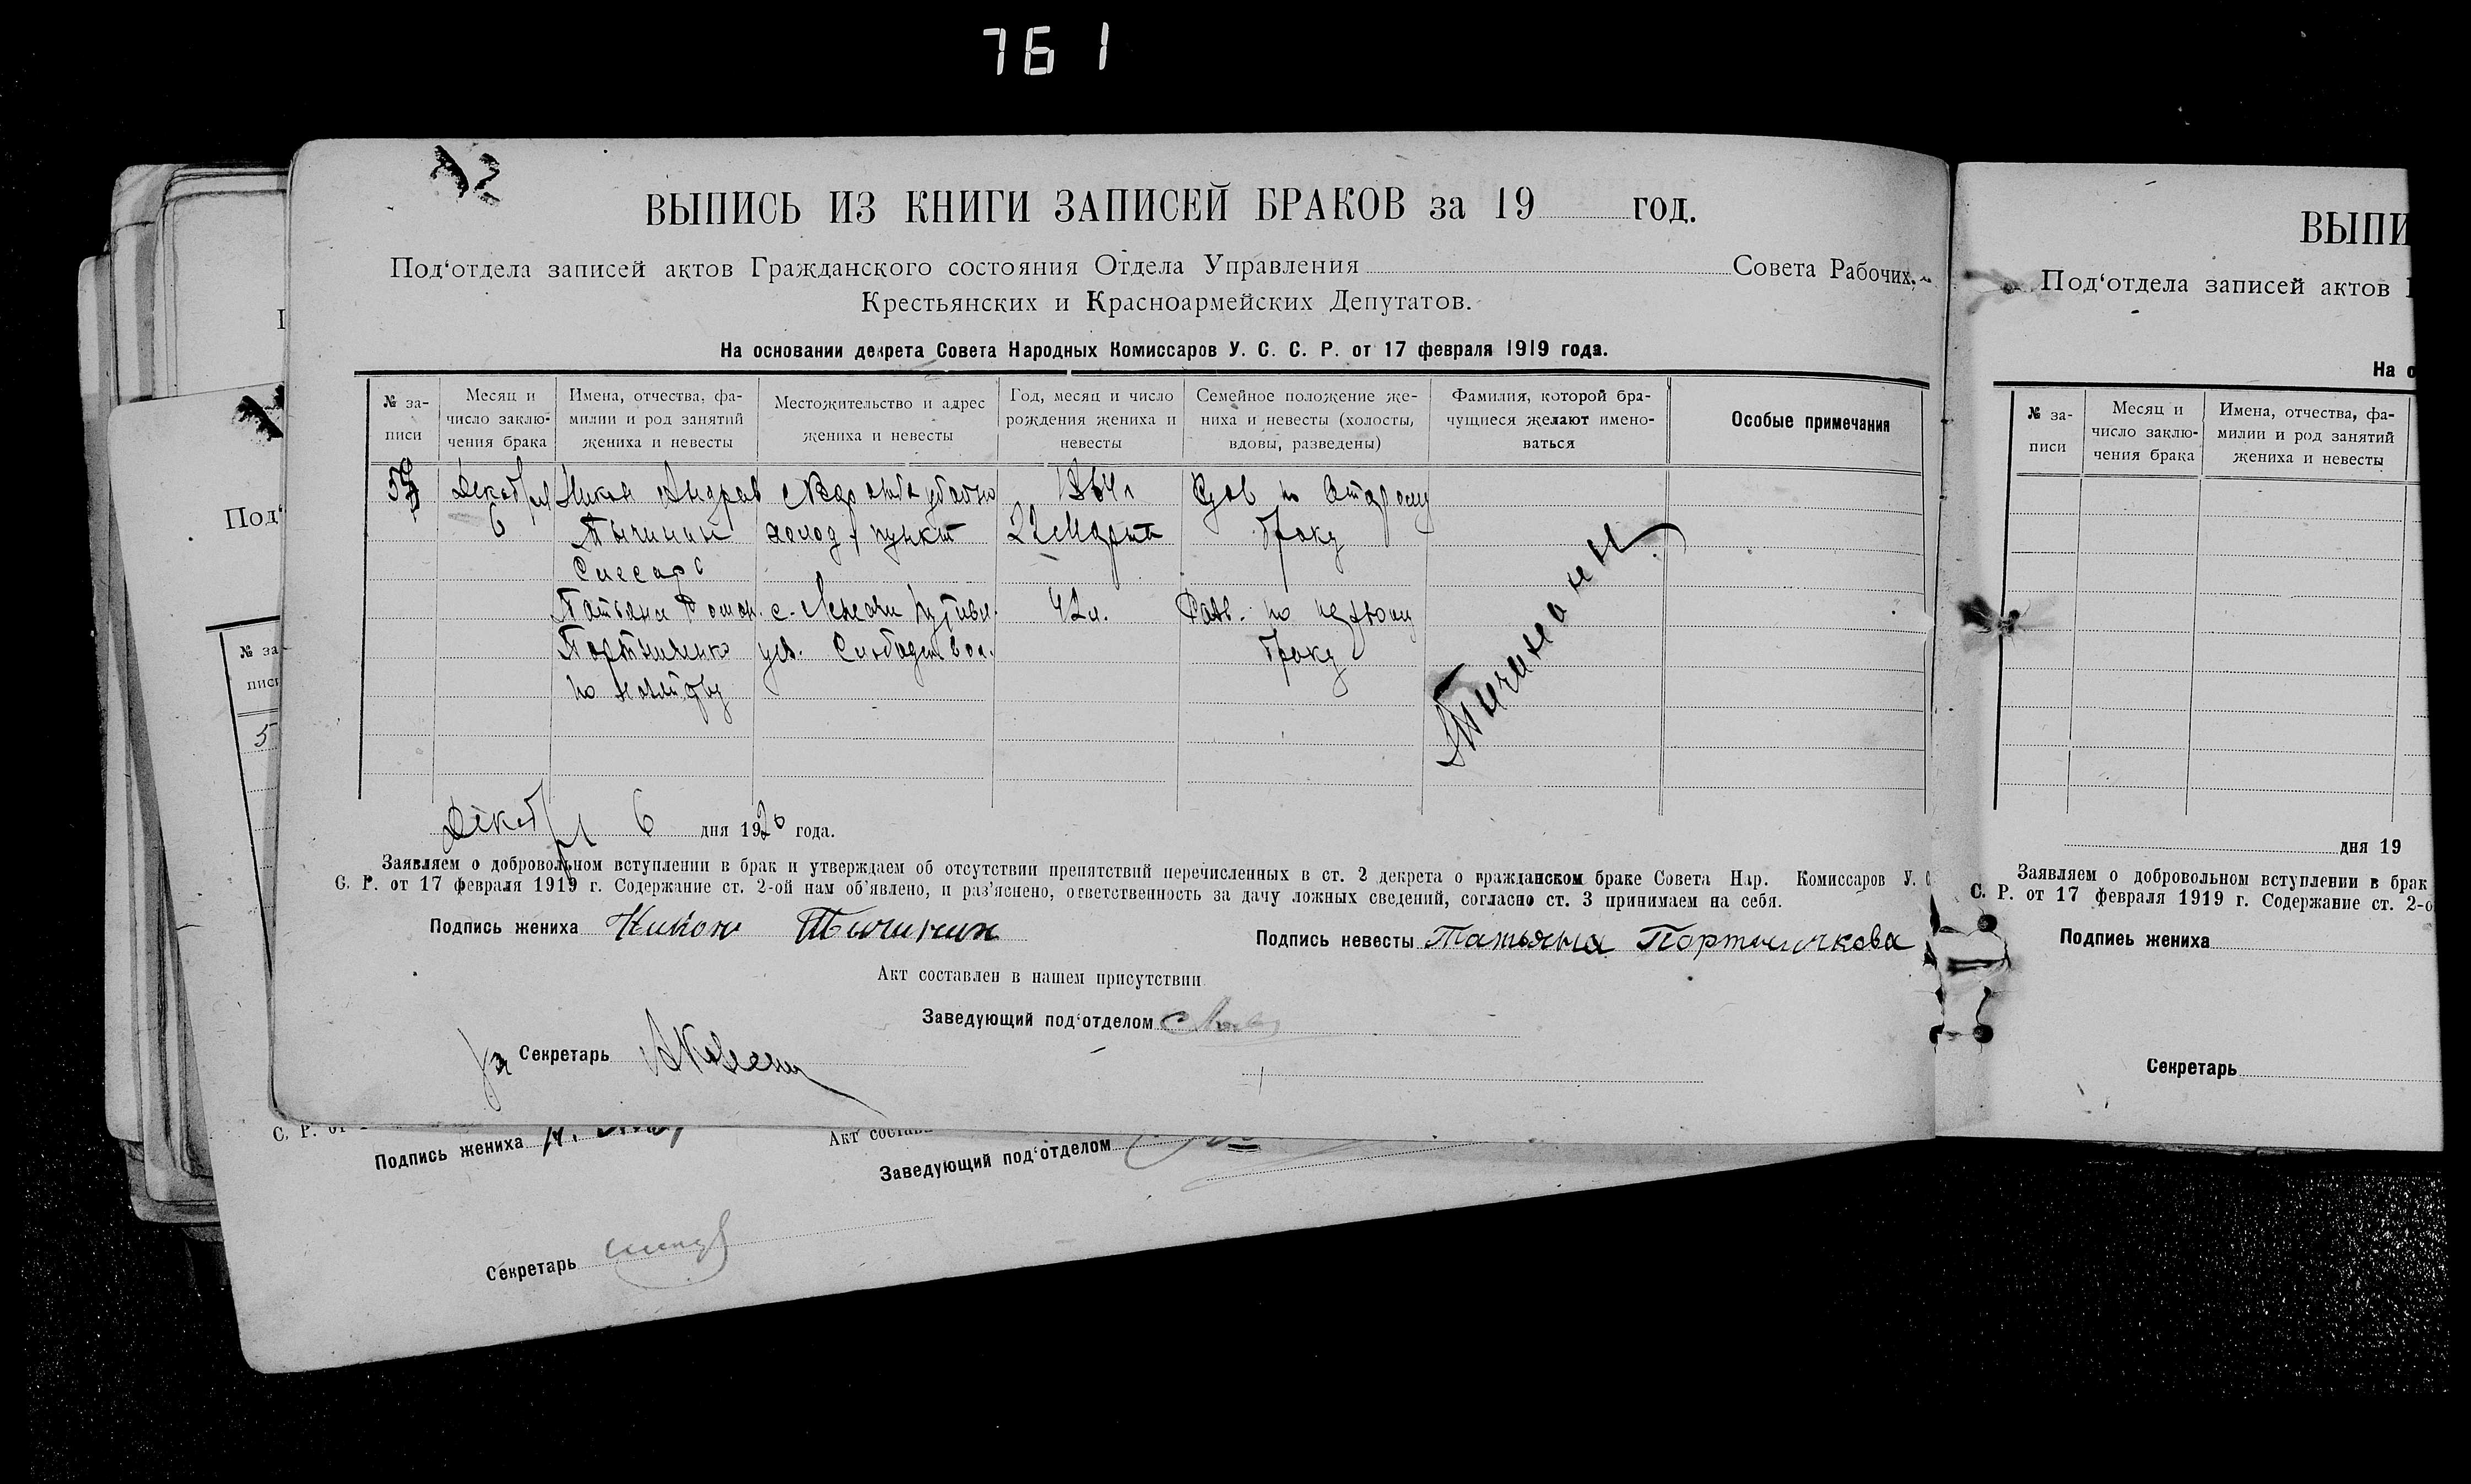 761
ВЫПИСЬ ИЗ КНИГИ ЗАПИСЕЙ БРАКОВ за 19 год.
Под‘отдела записей актов Гражданского состояния Отдела Управления Совета Рабочих,
Крестьянских и Красноармейских Депутатов.
На основании декрета Совета Народных Комиссаров У. С. С. Р. от 17 февраля 1919 года.
№ за-
писи
Месяц и
число заклю-
чения брака
Имена, отчества, фа-
милии и род занятий
жениха и невесты
Местожительство и адрес
жениха и невесты
Год, месяц и число
рождения жениха и
невесты
Семейное положение же-
ниха и невесты (холосты,
вдовы, разведены)
Фамилия, которой бра-
чущиеся желают имено-
ваться
Особые примечания
Декабря
6
Никон Андреев
Тычинин
Слесарь
пункт
1864
22 Марта
Вдов по второму
браку
Татьяна Роман.
по хозяйству
уез. Слободск вол.
42 л.
по первому
браку
Тичинины
Декабря 6 дня 1920 года.
Заявляем о добровольном вступлении в брак и утверждаем об отсутствии препятствий перечисленных в ст. 2 декрета о гражданском браке Совета Нар. Комиссаров У. С
С. Р. от 17 февраля 1919 г. Содержание ст. 2-ой нам об’явлено, и раз’яснено, ответственность за дачу ложных сведений, согласно ст. 3 принимаем на себя.
Подпись жениха Никон Тычинин
Подпись невесты Татьяна Портыночкова
Акт составлен в нашем присутствии
Заведующий под‘отделом
за Секретарь
С. Р. от
Подпись жениха
Акт состав
Заведующий под‘отделом
Секретарь
Под‘
№ за
писи
5
ВЫПИ
Под‘отдела записей актов
На о
№ за-
писи
Месяц и
число заклю-
чения брака
Имена, отчества, фа-
милии и род занятий
жениха и невесты
дня 19
Заявляем о добровольном вступлении в брак
С. Р. от 17 февраля 1919 г. Содержание ст. 2-о
Подпись жениха
Секретарь